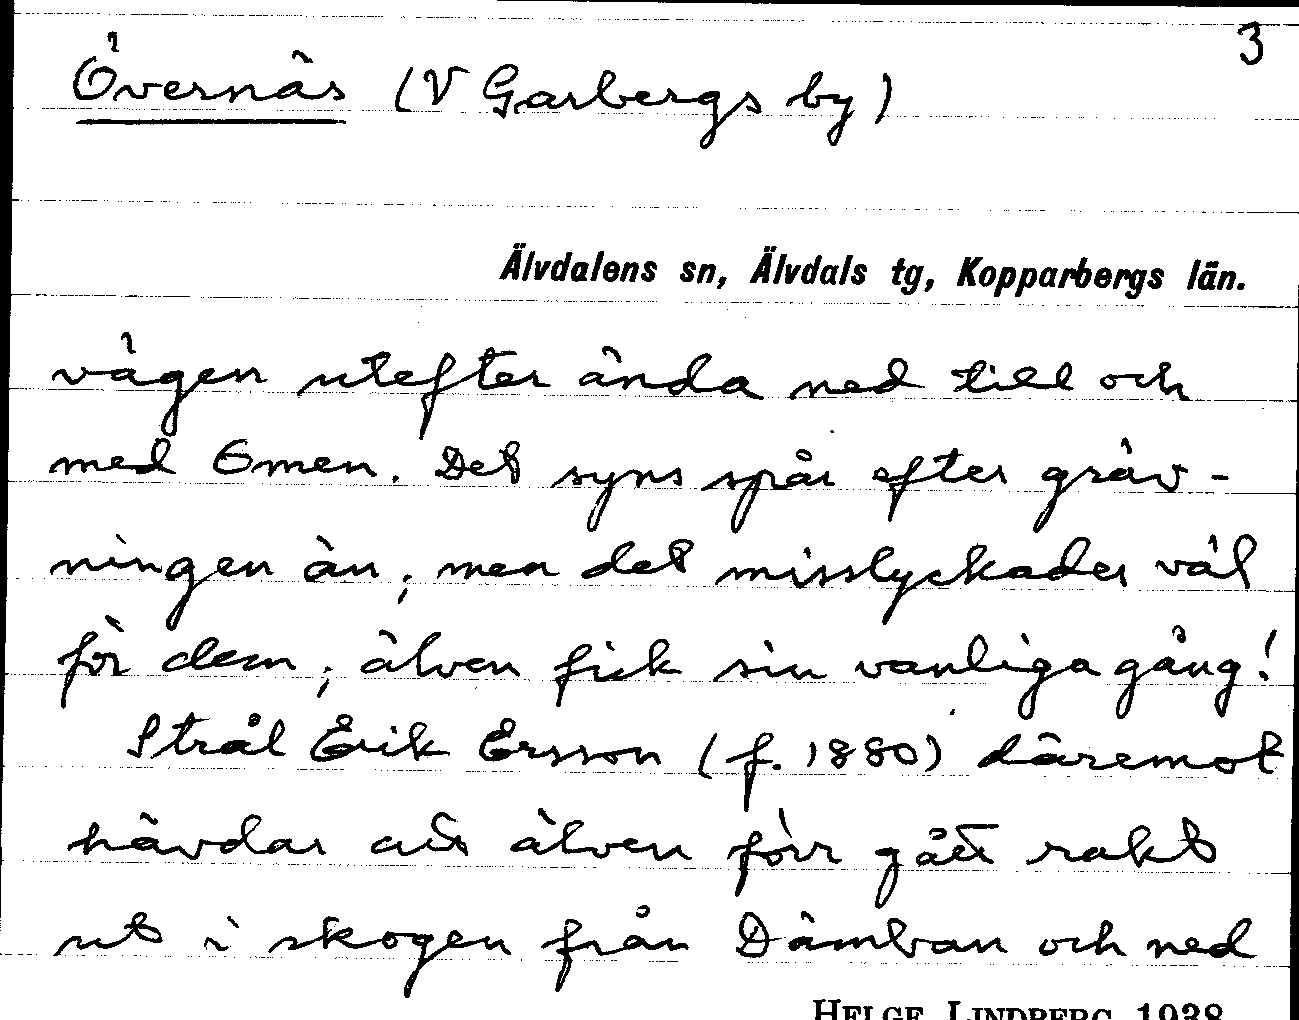 3
Övernäs (V Garbergs by)
Älvdalens sn, Älvdals tg, Kopparbergs län.
vägen utefter ända ned till och
med Emen. Det syns spår efter gräv-
ningen än; men det misslyckades väl
för dem; älven fick sin vanliga gång!
Strål Erik Ersson (f. 1880) däremot
hävdar att älven förr gått rakt
ut i skogen från Dämban och ned
HELGE LINDBERG 1938